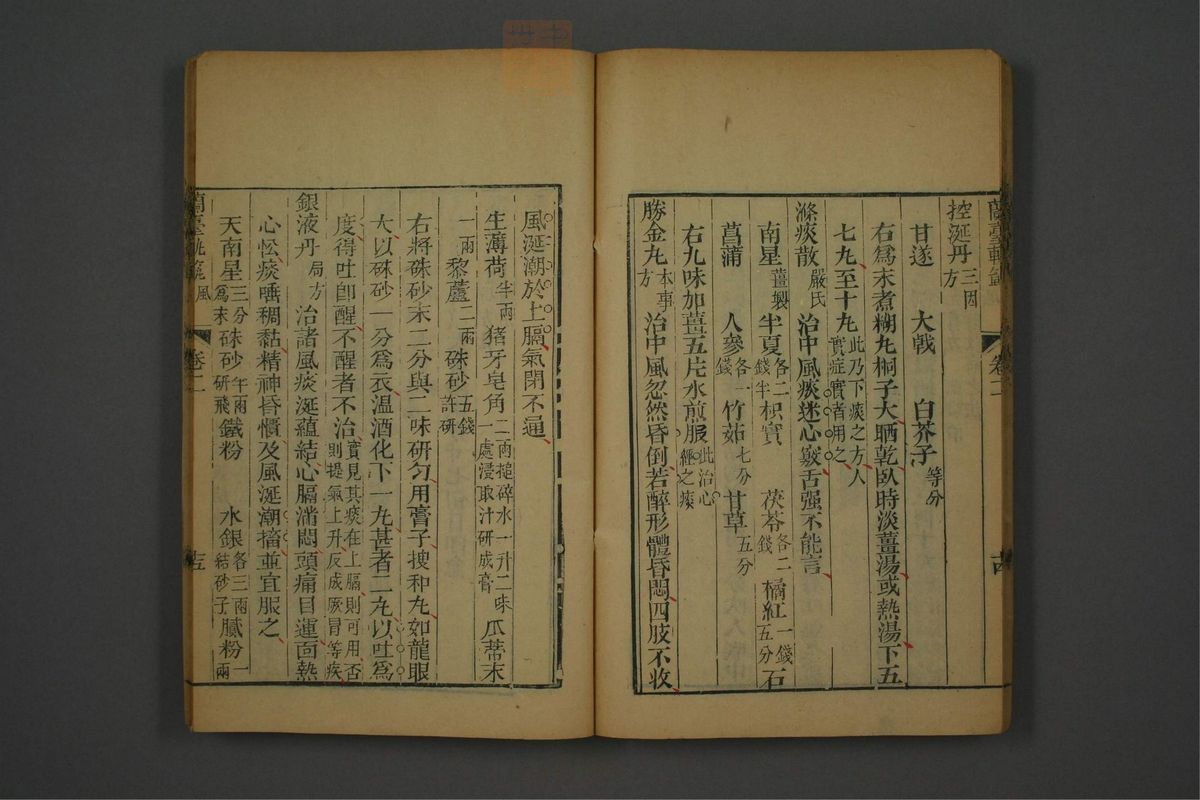 控涎丹三因方
甘遂 大戟 白芥子等分
右爲末煮糊丸桐子大晒乾臥時淡薑湯或熱湯下五
七丸至十丸此乃下痰之方人實症實者用之
滌痰散嚴氏 治中風痰迷心竅舌强不能言
南星薑製 半夏各二錢半 枳實 茯苓各二錢 橘紅一錢五分 石
菖蒲 人參各一錢 竹茹七分 甘草五分
右九味加薑五片水煎服此治心經之痰
勝金丸本事方 治中風忽然昏倒若醉形體昏悶四肢不收
風涎潮於上膈氣閉不通
生薄荷半兩 猪牙皂角二兩搥碎水一升二味一處浸取汁研成膏 瓜蒂末
一兩 黎蘆二兩 硃砂五錢許研
右將硃砂末二分與二味研勻用膏子搜和丸如龍眼
大以硃砂一分爲衣溫酒化下一丸甚者二丸以吐爲
度得吐卽醒不醒者不治實見其痰在上膈則可用否則提氣上升反成厥冒等疾
銀液丹局方 治諸風痰涎蘊結心膈滿悶頭痛目運面熱
心忪痰唾稠黏精神昏憒及風涎潮搐並宜服之
天南星三分爲末 硃砂半兩研飛 鐵粉 水銀各三兩結砂子 膩粉一兩
蘭臺軌範 風 卷二